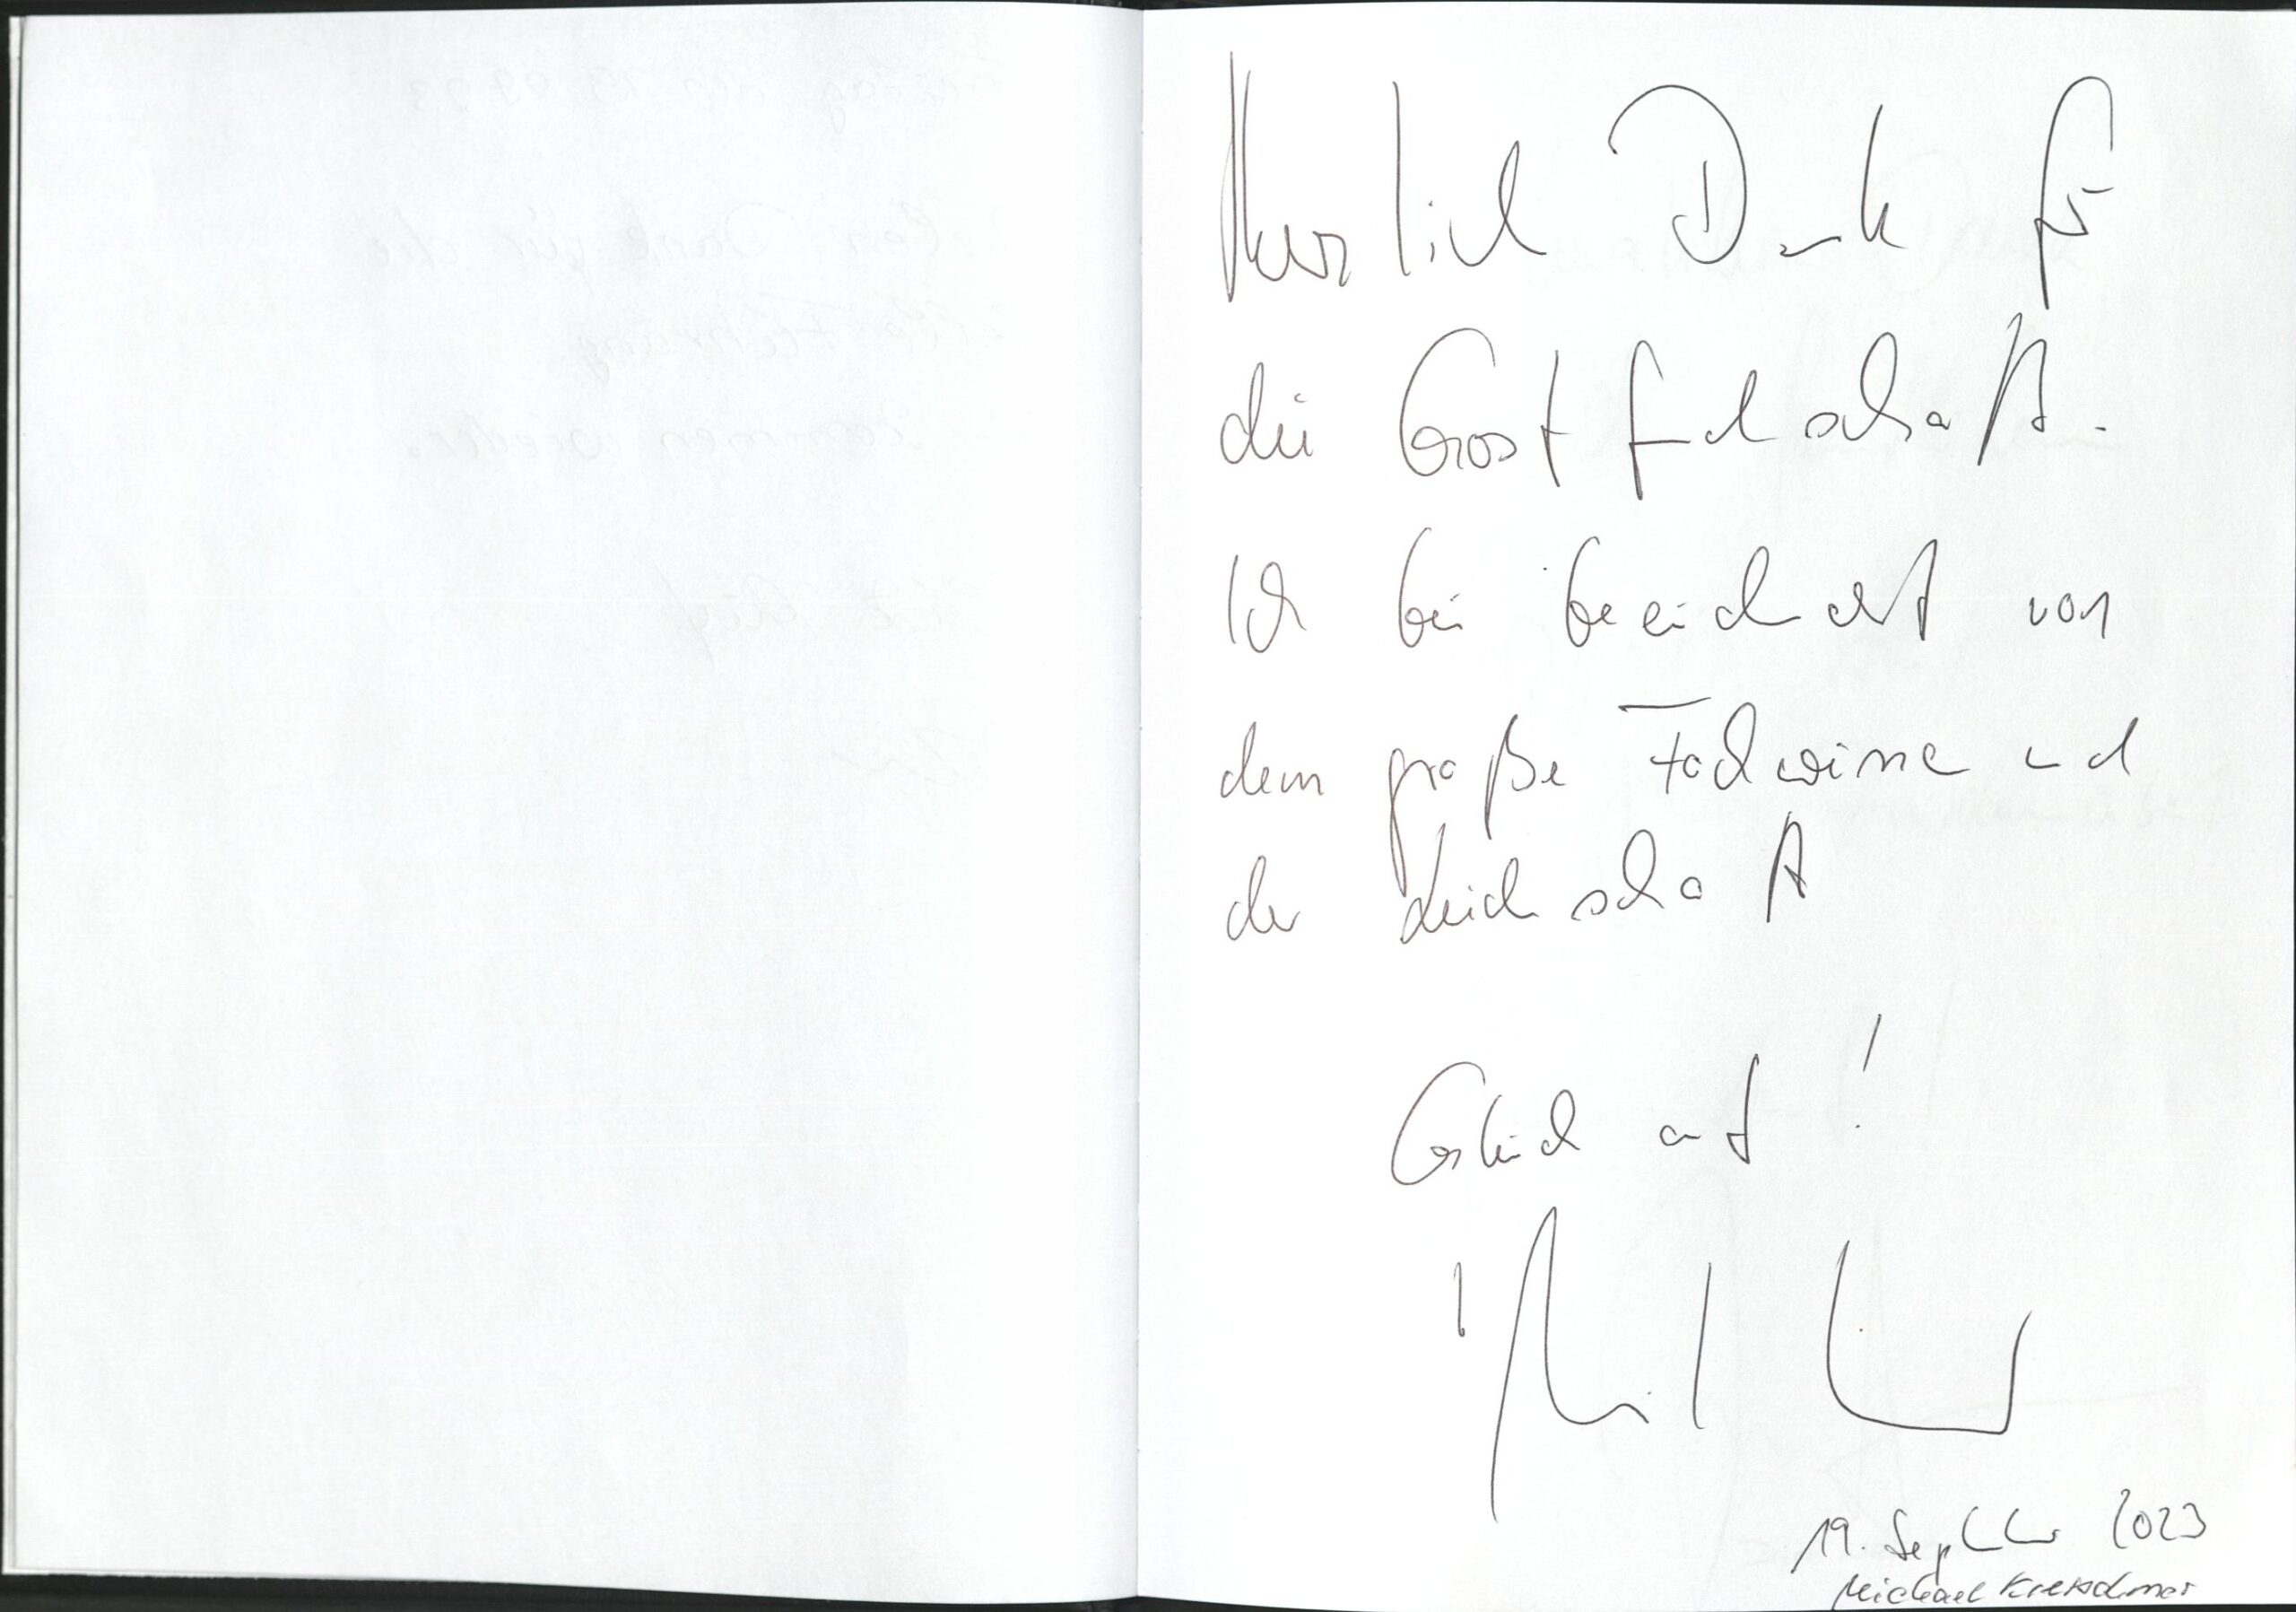 Herzlich Dank für
die Gastfreundschaft.
Ich bin beeindruckt von
dem große Fachwissen und
der Leidenschaft
Glück auf!
19. September 2023
Michael Kretschmer